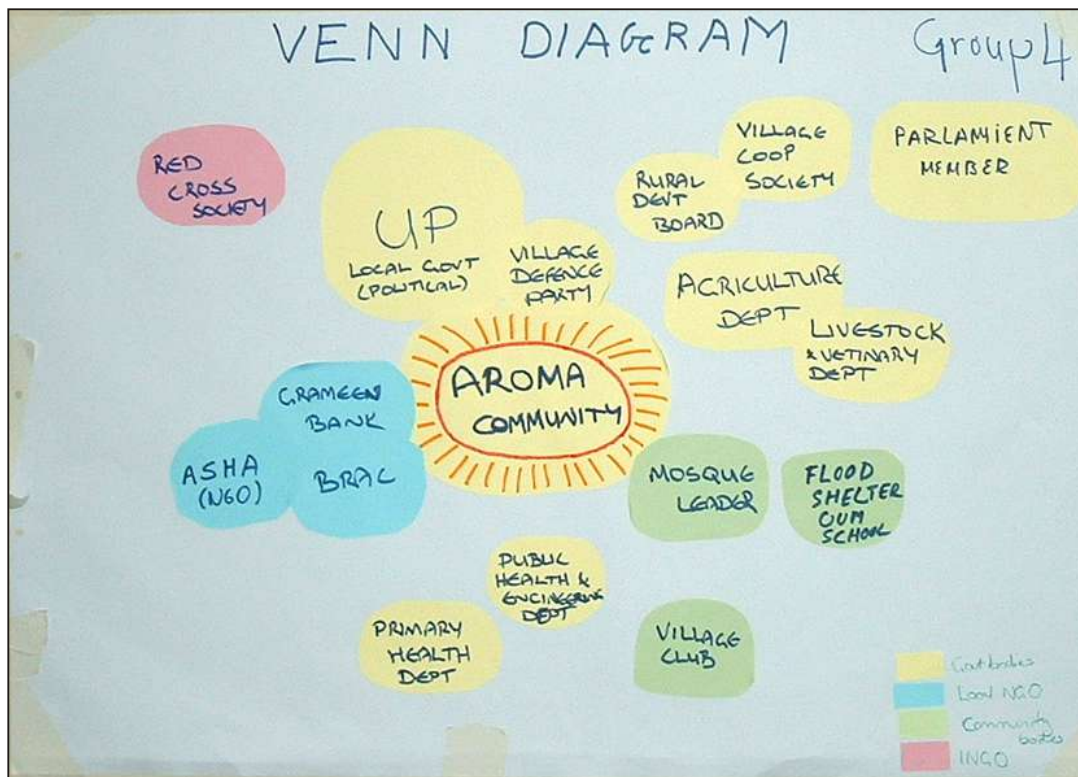 VENN DIAGRAM
Group 4
RED
CROSS
SOCIETY
UP
LOCAL GOVT
(POLITICAL)
VILLAGE
DEFENCE
PARTY
RURAL
DEVT
BOARD
VILLAGE
COOP
SOCIETY
PARLAMIENT
MEMBER
AGRICULTURE
DEPT
LIVESTOCK
& VETINARY
DEPT
AROMA
COMMUNITY
GRAMEEN
BANK
ASHA
(NGO)
BRAC
MOSQUE
LEADER
FLOOD
SHELTER
CUM
SCHOOL
PUBLIC
HEALTH &
ENGINEERING
DEPT
PRIMARY
HEALTH
DEPT
VILLAGE
CLUB
Govt bodies
Local NGO
Community
bodies
INGO